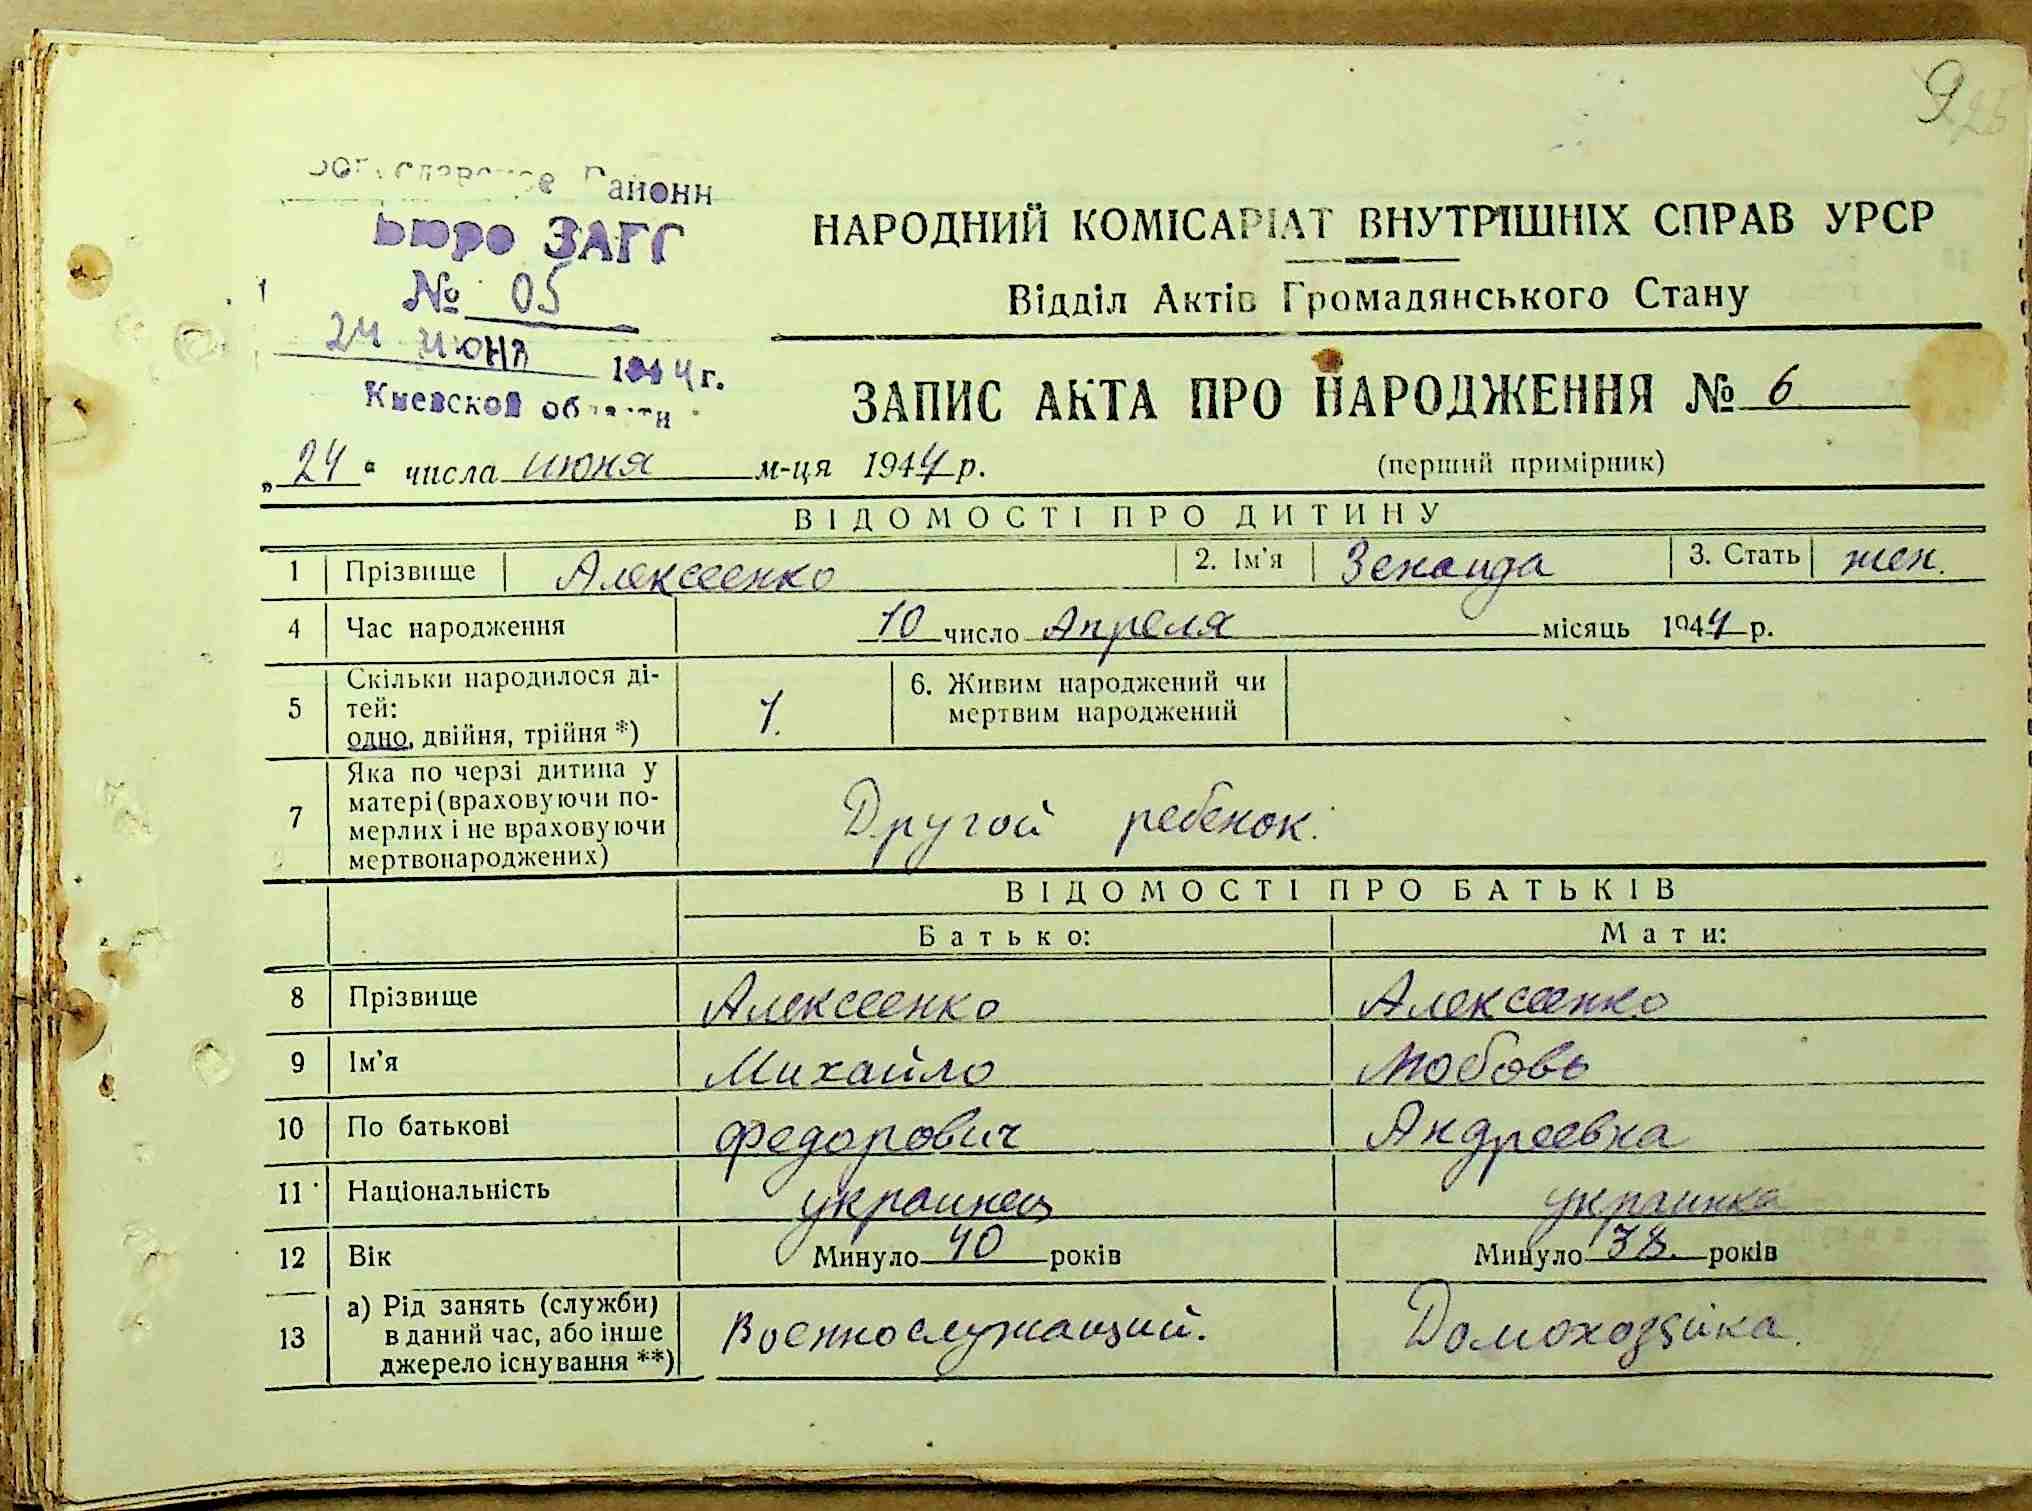 9
Районн
Бюро ЗАГС
№ 05
24 июня 1944 г.
Киевской области
НАРОДНИЙ КОМІСАРІАТ ВНУТРІШНІХ СПРАВ УРСР
Відділ Актів Громадянського Стану
ЗАПИС АКТА ПРО НАРОДЖЕННЯ № 6
„24“ числа июня м-ця 1944 р.
(перший примірник)
ВІДОМОСТІ ПРО ДИТИНУ
1 Прізвище Алексеенко 2. Ім'я Зенаида 3. Стать жен.
4 Час народження 10 число Апреля місяць 1944 р.
5 Скільки народилося ді-
тей:
одно, двійня, трійня *)
1.
6. Живим народжений чи
мертвим народжений
7 Яка по черзі дитина у
матері (враховуючи по-
мерлих і не враховуючи
мертвонароджених)
Другой ребенок.
ВІДОМОСТІ ПРО БАТЬКІВ
Батько: Мати:
8 Прізвище Алексеенко Алексеенко
9 Ім'я Михайло Любовь
10 По батькові Федорович Андреевна
11 Національність украинец украинка
12 Вік Минуло 40 років Минуло 38 років
13 а) Рід занять (служби)
в даний час, або інше
джерело існування **)
Военнослужащий. Домохозяйка.